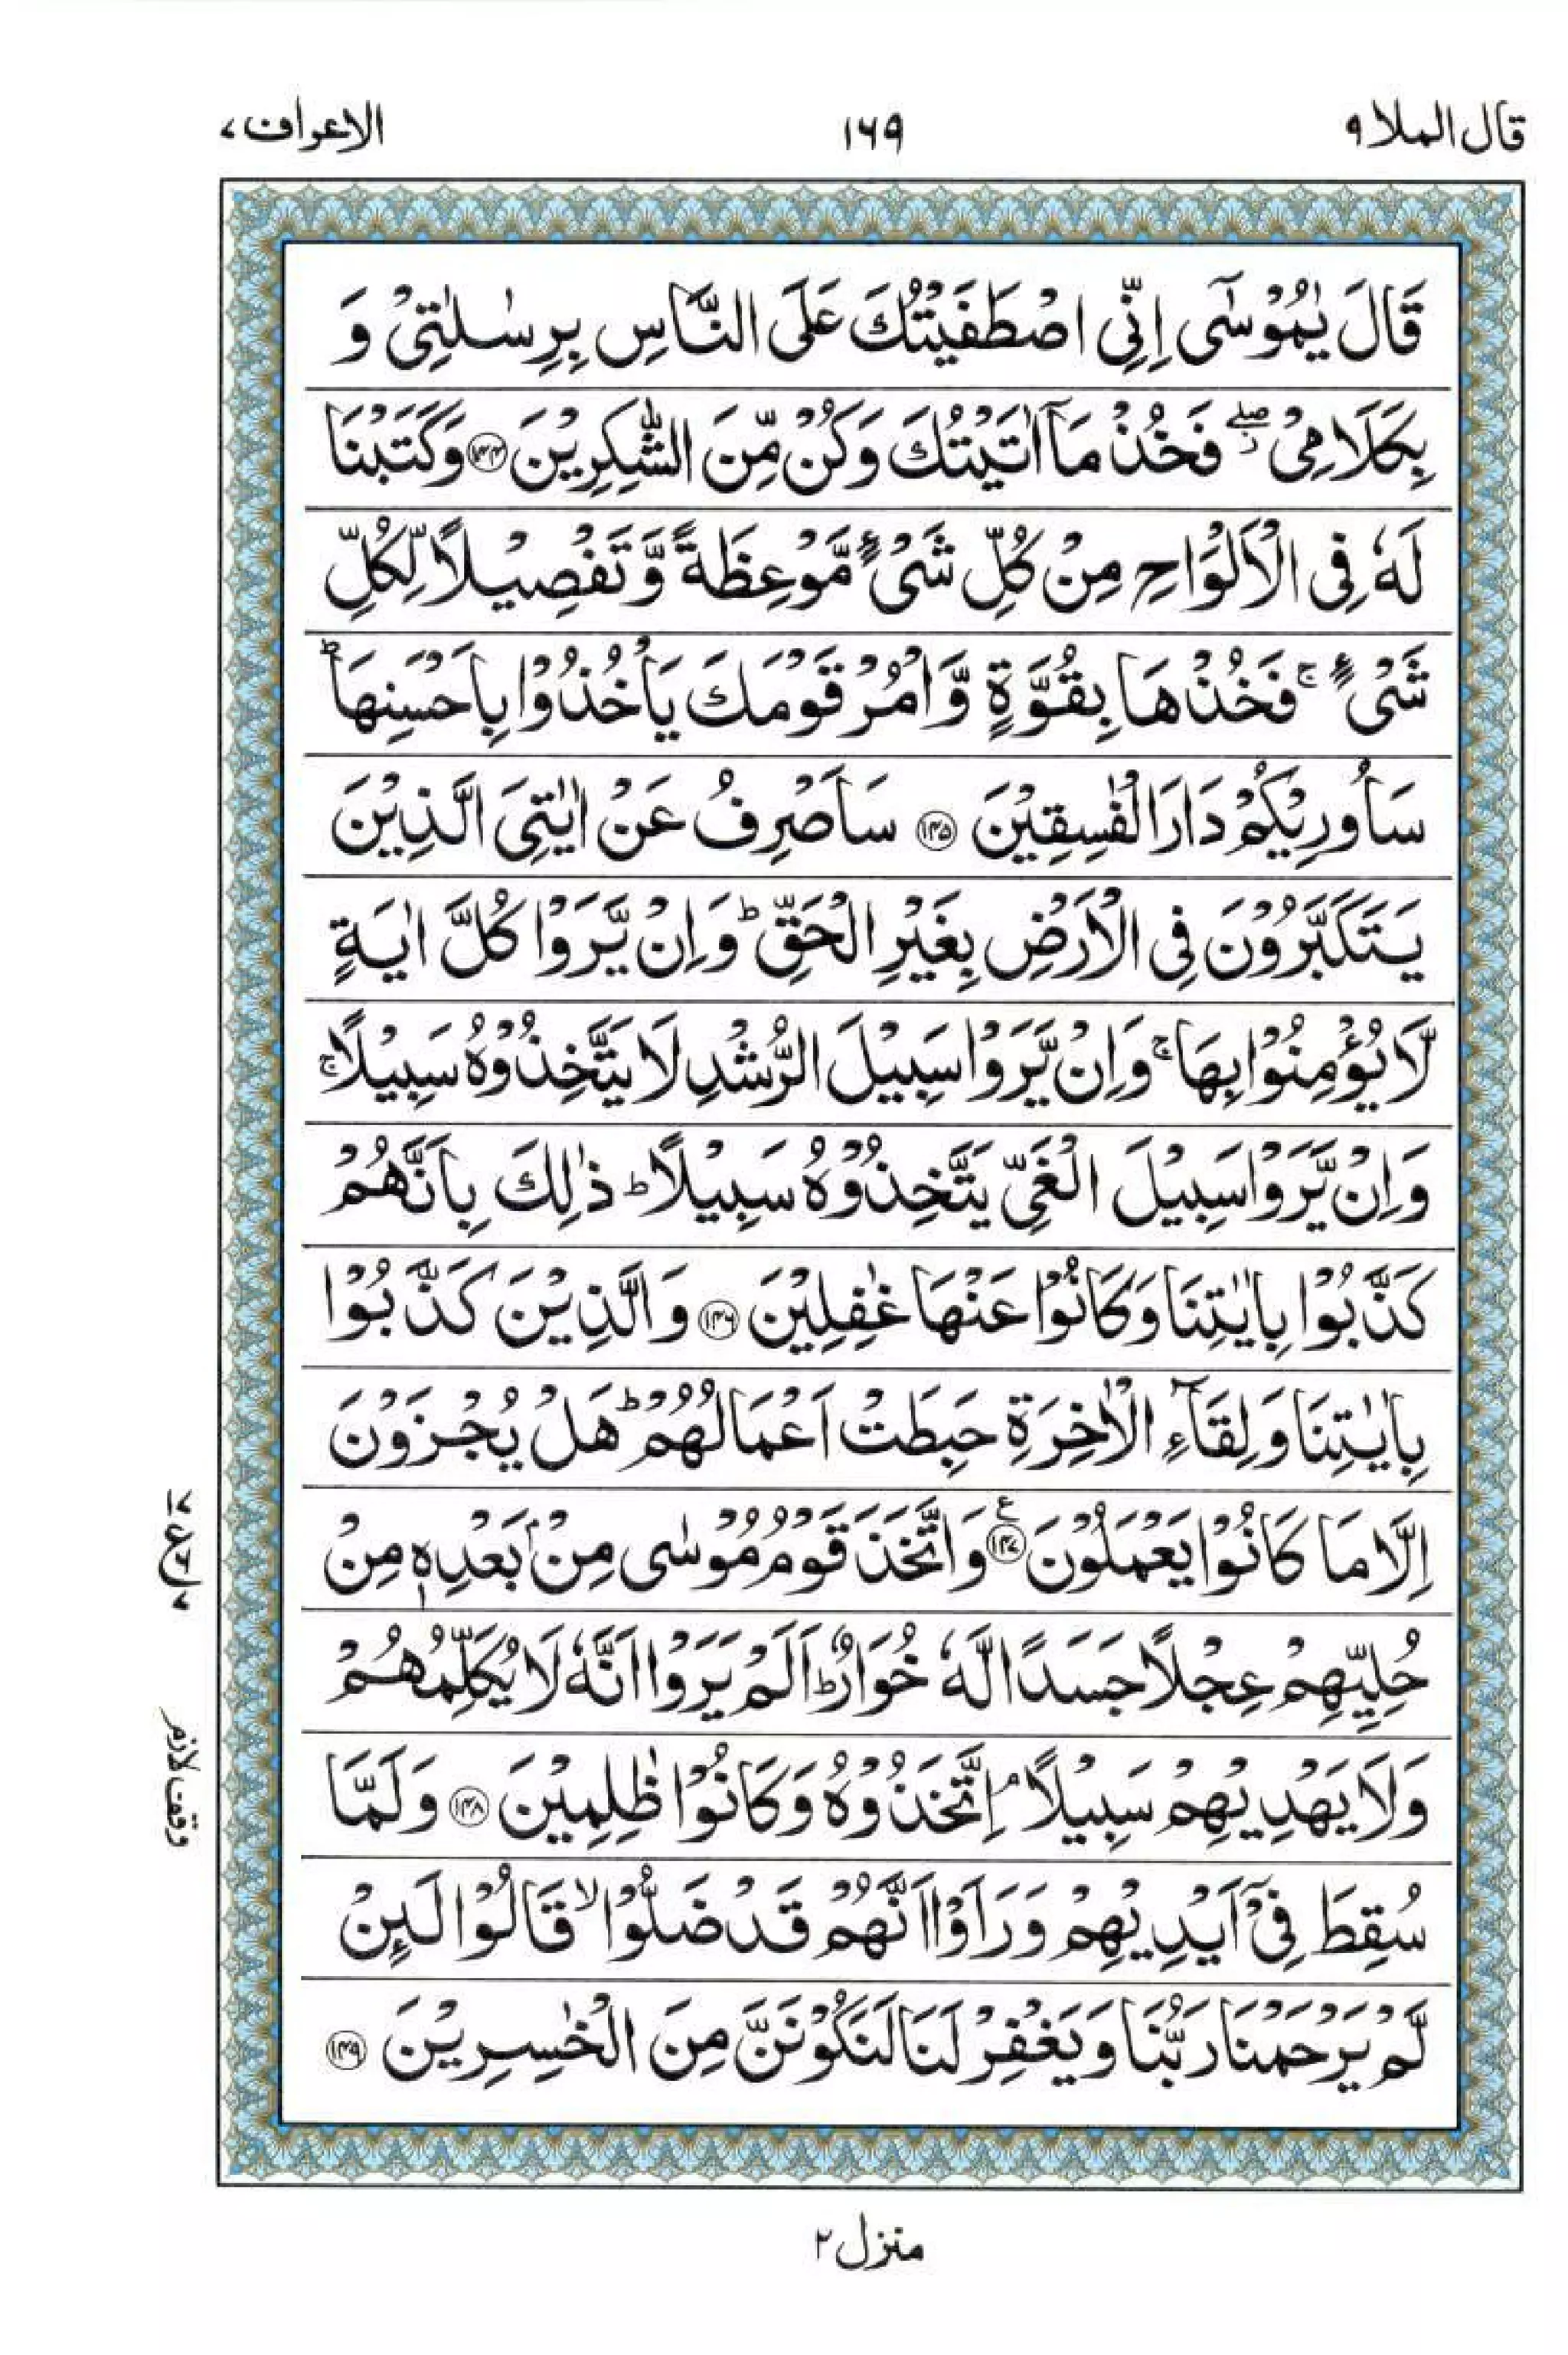 قال الملا ۹
۱۶۹
الاعراف ۷
قَالَ يٰمُوْسٰٓى اِنِّى اصْطَفَيْتُكَ عَلَى النَّاسِ بِرِسٰلٰتِىْ وَ
بِكَلَامِىْ ۖ فَخُذْ مَاۤ اٰتَيْتُكَ وَكُنْ مِّنَ الشّٰكِرِيْنَ ﴿۱۴۴﴾ وَكَتَبْنَا
لَهٗ فِى الْاَلْوَاحِ مِنْ كُلِّ شَىْءٍ مَّوْعِظَةً وَّ تَفْصِيْلًا لِّكُلِّ
شَىْءٍ ۚ فَخُذْهَا بِقُوَّةٍ وَّ اْمُرْ قَوْمَكَ يَاْخُذُوْا بِاَحْسَنِهَا ؕ
سَاُورِيْكُمْ دَارَ الْفٰسِقِيْنَ ﴿۱۴۵﴾ سَاَصْرِفُ عَنْ اٰيٰتِىَ الَّذِيْنَ
يَتَكَبَّرُوْنَ فِى الْاَرْضِ بِغَيْرِ الْحَقِّ ؕ وَ اِنْ يَّرَوْا كُلَّ اٰيَةٍ
لَّا يُؤْمِنُوْا بِهَا ۚ وَ اِنْ يَّرَوْا سَبِيْلَ الرُّشْدِ لَا يَتَّخِذُوْهُ سَبِيْلًا ۚ
وَ اِنْ يَّرَوْا سَبِيْلَ الْغَىِّ يَتَّخِذُوْهُ سَبِيْلًا ؕ ذٰلِكَ بِاَنَّهُمْ
كَذَّبُوْا بِاٰيٰتِنَا وَكَانُوْا عَنْهَا غٰفِلِيْنَ ﴿۱۴۶﴾ وَ الَّذِيْنَ كَذَّبُوْا
بِاٰيٰتِنَا وَ لِقَآءِ الْاٰخِرَةِ حَبِطَتْ اَعْمَالُهُمْ ؕ هَلْ يُجْزَوْنَ
اِلَّا مَا كَانُوْا يَعْمَلُوْنَ ﴿۱۴۷﴾ ع وَ اتَّخَذَ قَوْمُ مُوْسٰى مِنْۢ بَعْدِهٖ مِنْ
حُلِيِّهِمْ عِجْلًا جَسَدًا لَّهٗ خُوَارٌ ؕ اَلَمْ يَرَوْا اَنَّهٗ لَا يُكَلِّمُهُمْ
وَلَا يَهْدِيْهِمْ سَبِيْلًا ۘ اِتَّخَذُوْهُ وَكَانُوْا ظٰلِمِيْنَ ﴿۱۴۸﴾ وَ لَمَّا
سُقِطَ فِىْۤ اَيْدِيْهِمْ وَ رَاَوْا اَنَّهُمْ قَدْ ضَلُّوْا ۙ قَالُوْا لَئِنْ
لَّمْ يَرْحَمْنَا رَبُّنَا وَ يَغْفِرْ لَنَا لَنَكُوْنَنَّ مِنَ الْخٰسِرِيْنَ ﴿۱۴۹﴾
وقف لازم
منزل ۲